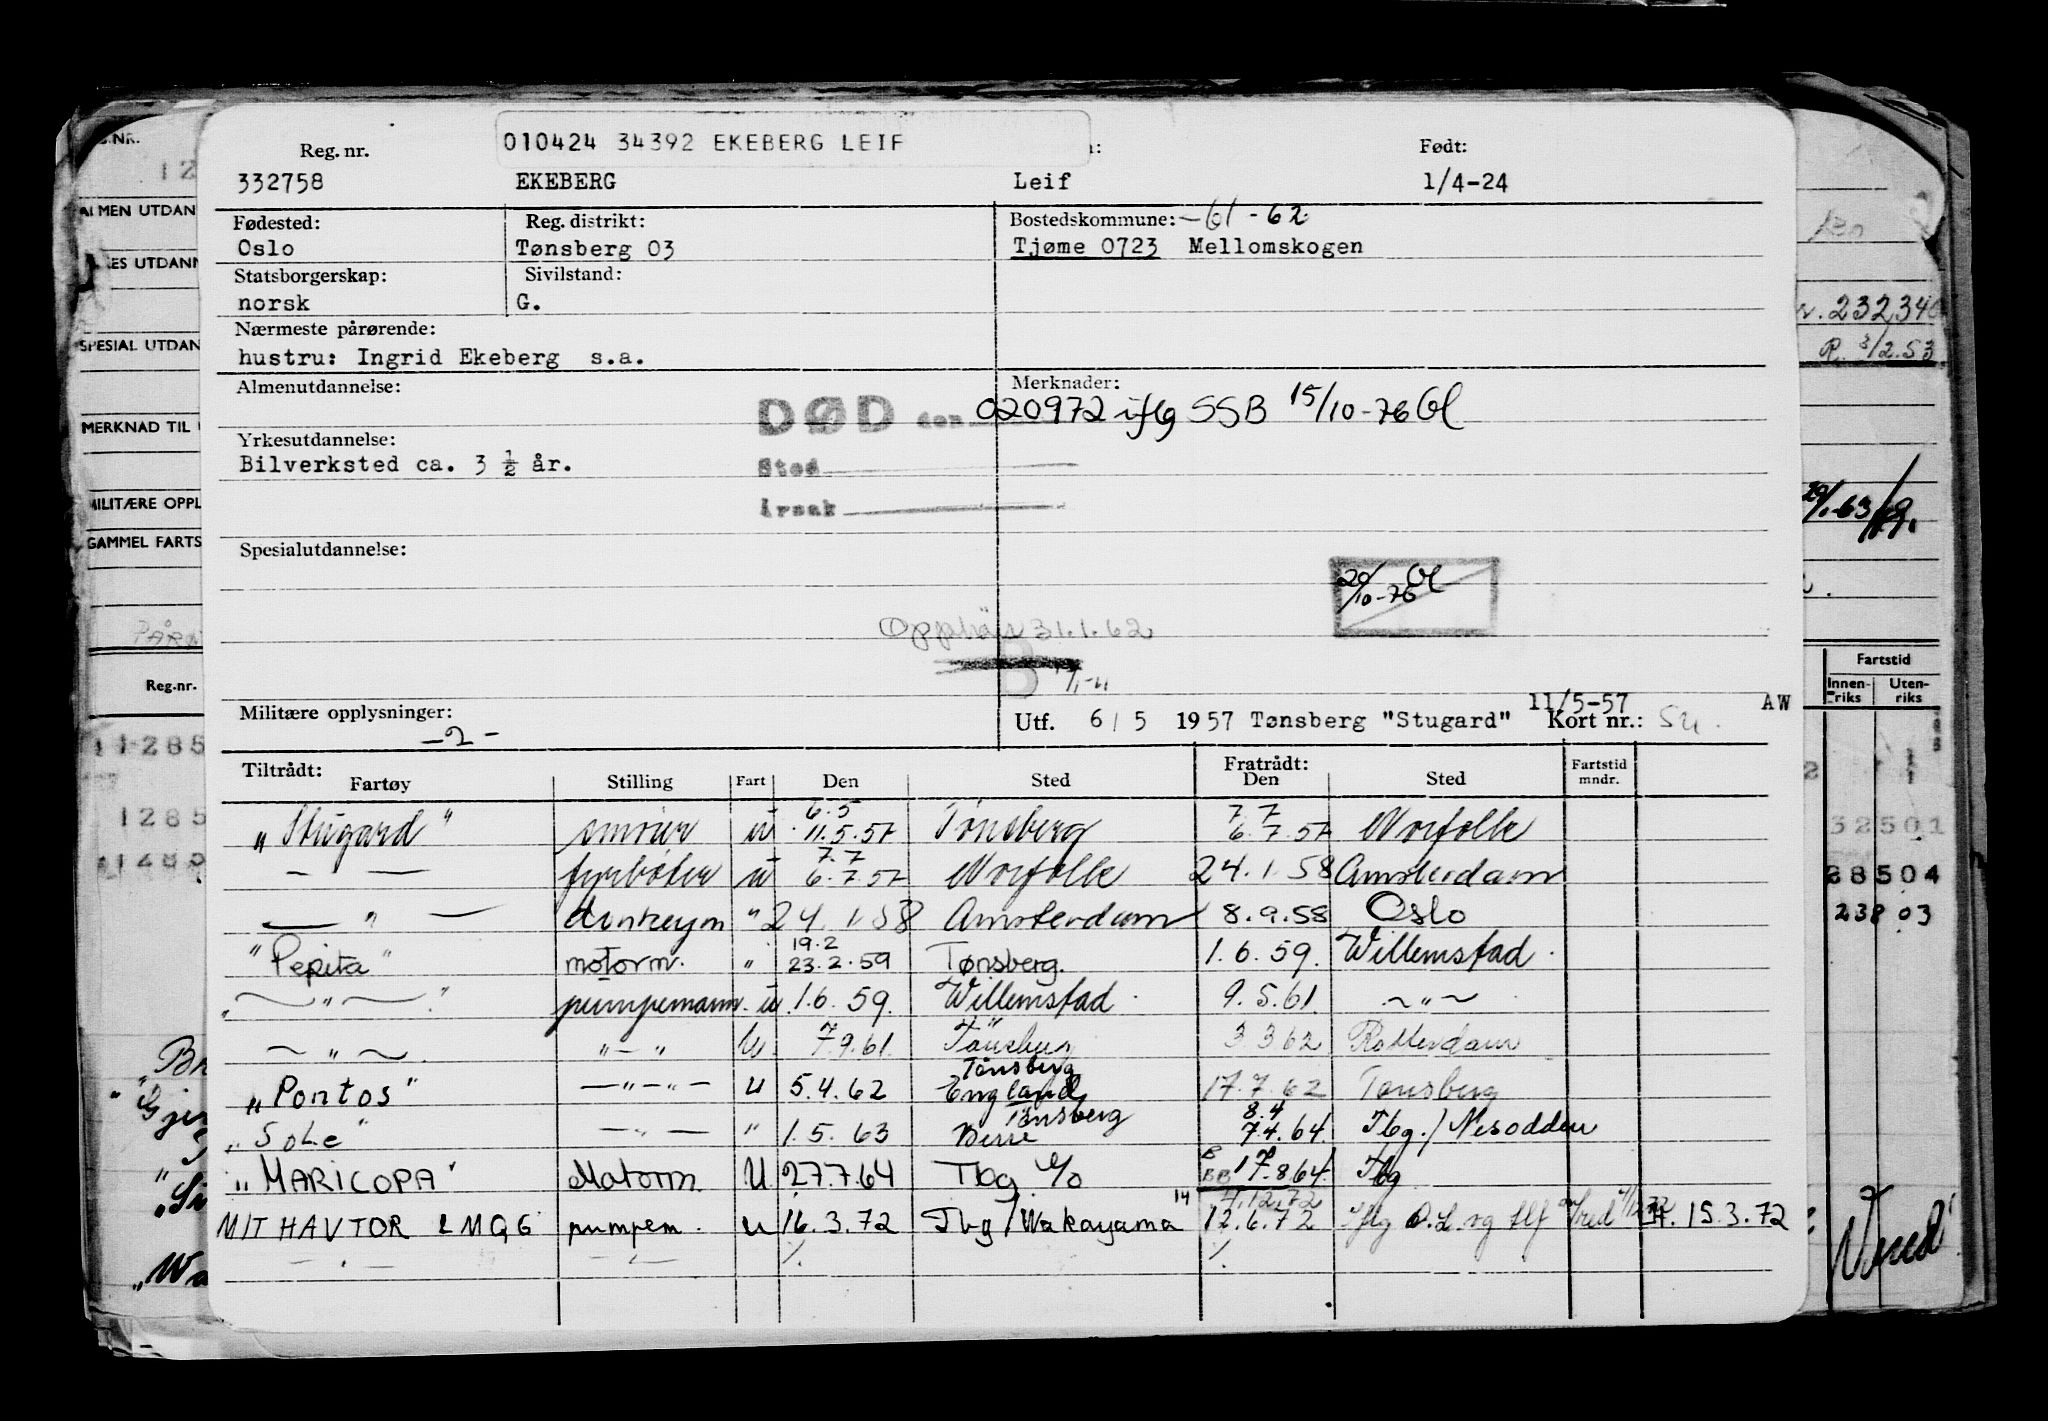 010424 34392 EKEBERG LEIF
Reg. nr. Født:
332758 EKEBERG Leif 1/4-24
Fødested: Reg. distrikt: Bostedskommune: -61-62
Oslo Tønsberg 03 Tjøme 0723 Mellomskogen
Statsborgerskap: Sivilstand:
norsk G.
Nærmeste pårørende:
hustru: Ingrid Ekeberg s.a.
Almenutdannelse: Merknader:
DØD den 020972 iflg SSB 15/10-76
Yrkesutdannelse:
Bilverksted ca. 3 ½ år.
Sted
Årsak
Spesialutdannelse:
20/10-76
31.1.62
Militære opplysninger: -2-
11/5-57 AW
Utf. 6/5 1957 Tønsberg "Stugard" Kort nr.:
Tiltrådt: Fratrådt:
Fartøy Stilling Fart Den Sted Den Sted Fartstid mndr.
6.5 7.7
"Stugard" smører u 11.5.57 Tønsberg 6.7.57 Norfolk
7.7
— — fyrbøter u 6.7.57 Norfolk 24.1.58 Amsterdam
— " — donkeym " 24.1.58 Amsterdam 8.9.58 Oslo
19.2
"Pepita" motorm. " 23.2.59 Tønsberg. 1.6.59. Willemstad.
— " — pumpemann. u 1.6.59. Willemstad. 9.5.61. — " —
— " — " — " U 7.9.61. 3 3 62 Rotterdam
Tønsberg
"Pontos" — " — " — u 5.4.62 England 17.7.62 Tønsberg
Tønsberg 8.4
"Sole" — " — " 1.5.63 7.4.64. Tbg./Nesodden
"MARICOPA" Motorm. U 27.7.64 Tbg 17.8.64. Tbg
14 4.12.72
MIT HAVTOR LMQG pumpem. u 16.3.72 Tbg/Wakayama 12.6.72 15.3.72
REG.NR.
ALMEN UTDAN
UTDANN
SPESIAL UTDAN
MERKNAD TIL
MILITÆRE OPPL
GAMMEL FARTS
Reg.-nr.
1285
1285
1285
232340
3/2.53
Fartstid
Innenriks Utenriks
32501
28504
238 03